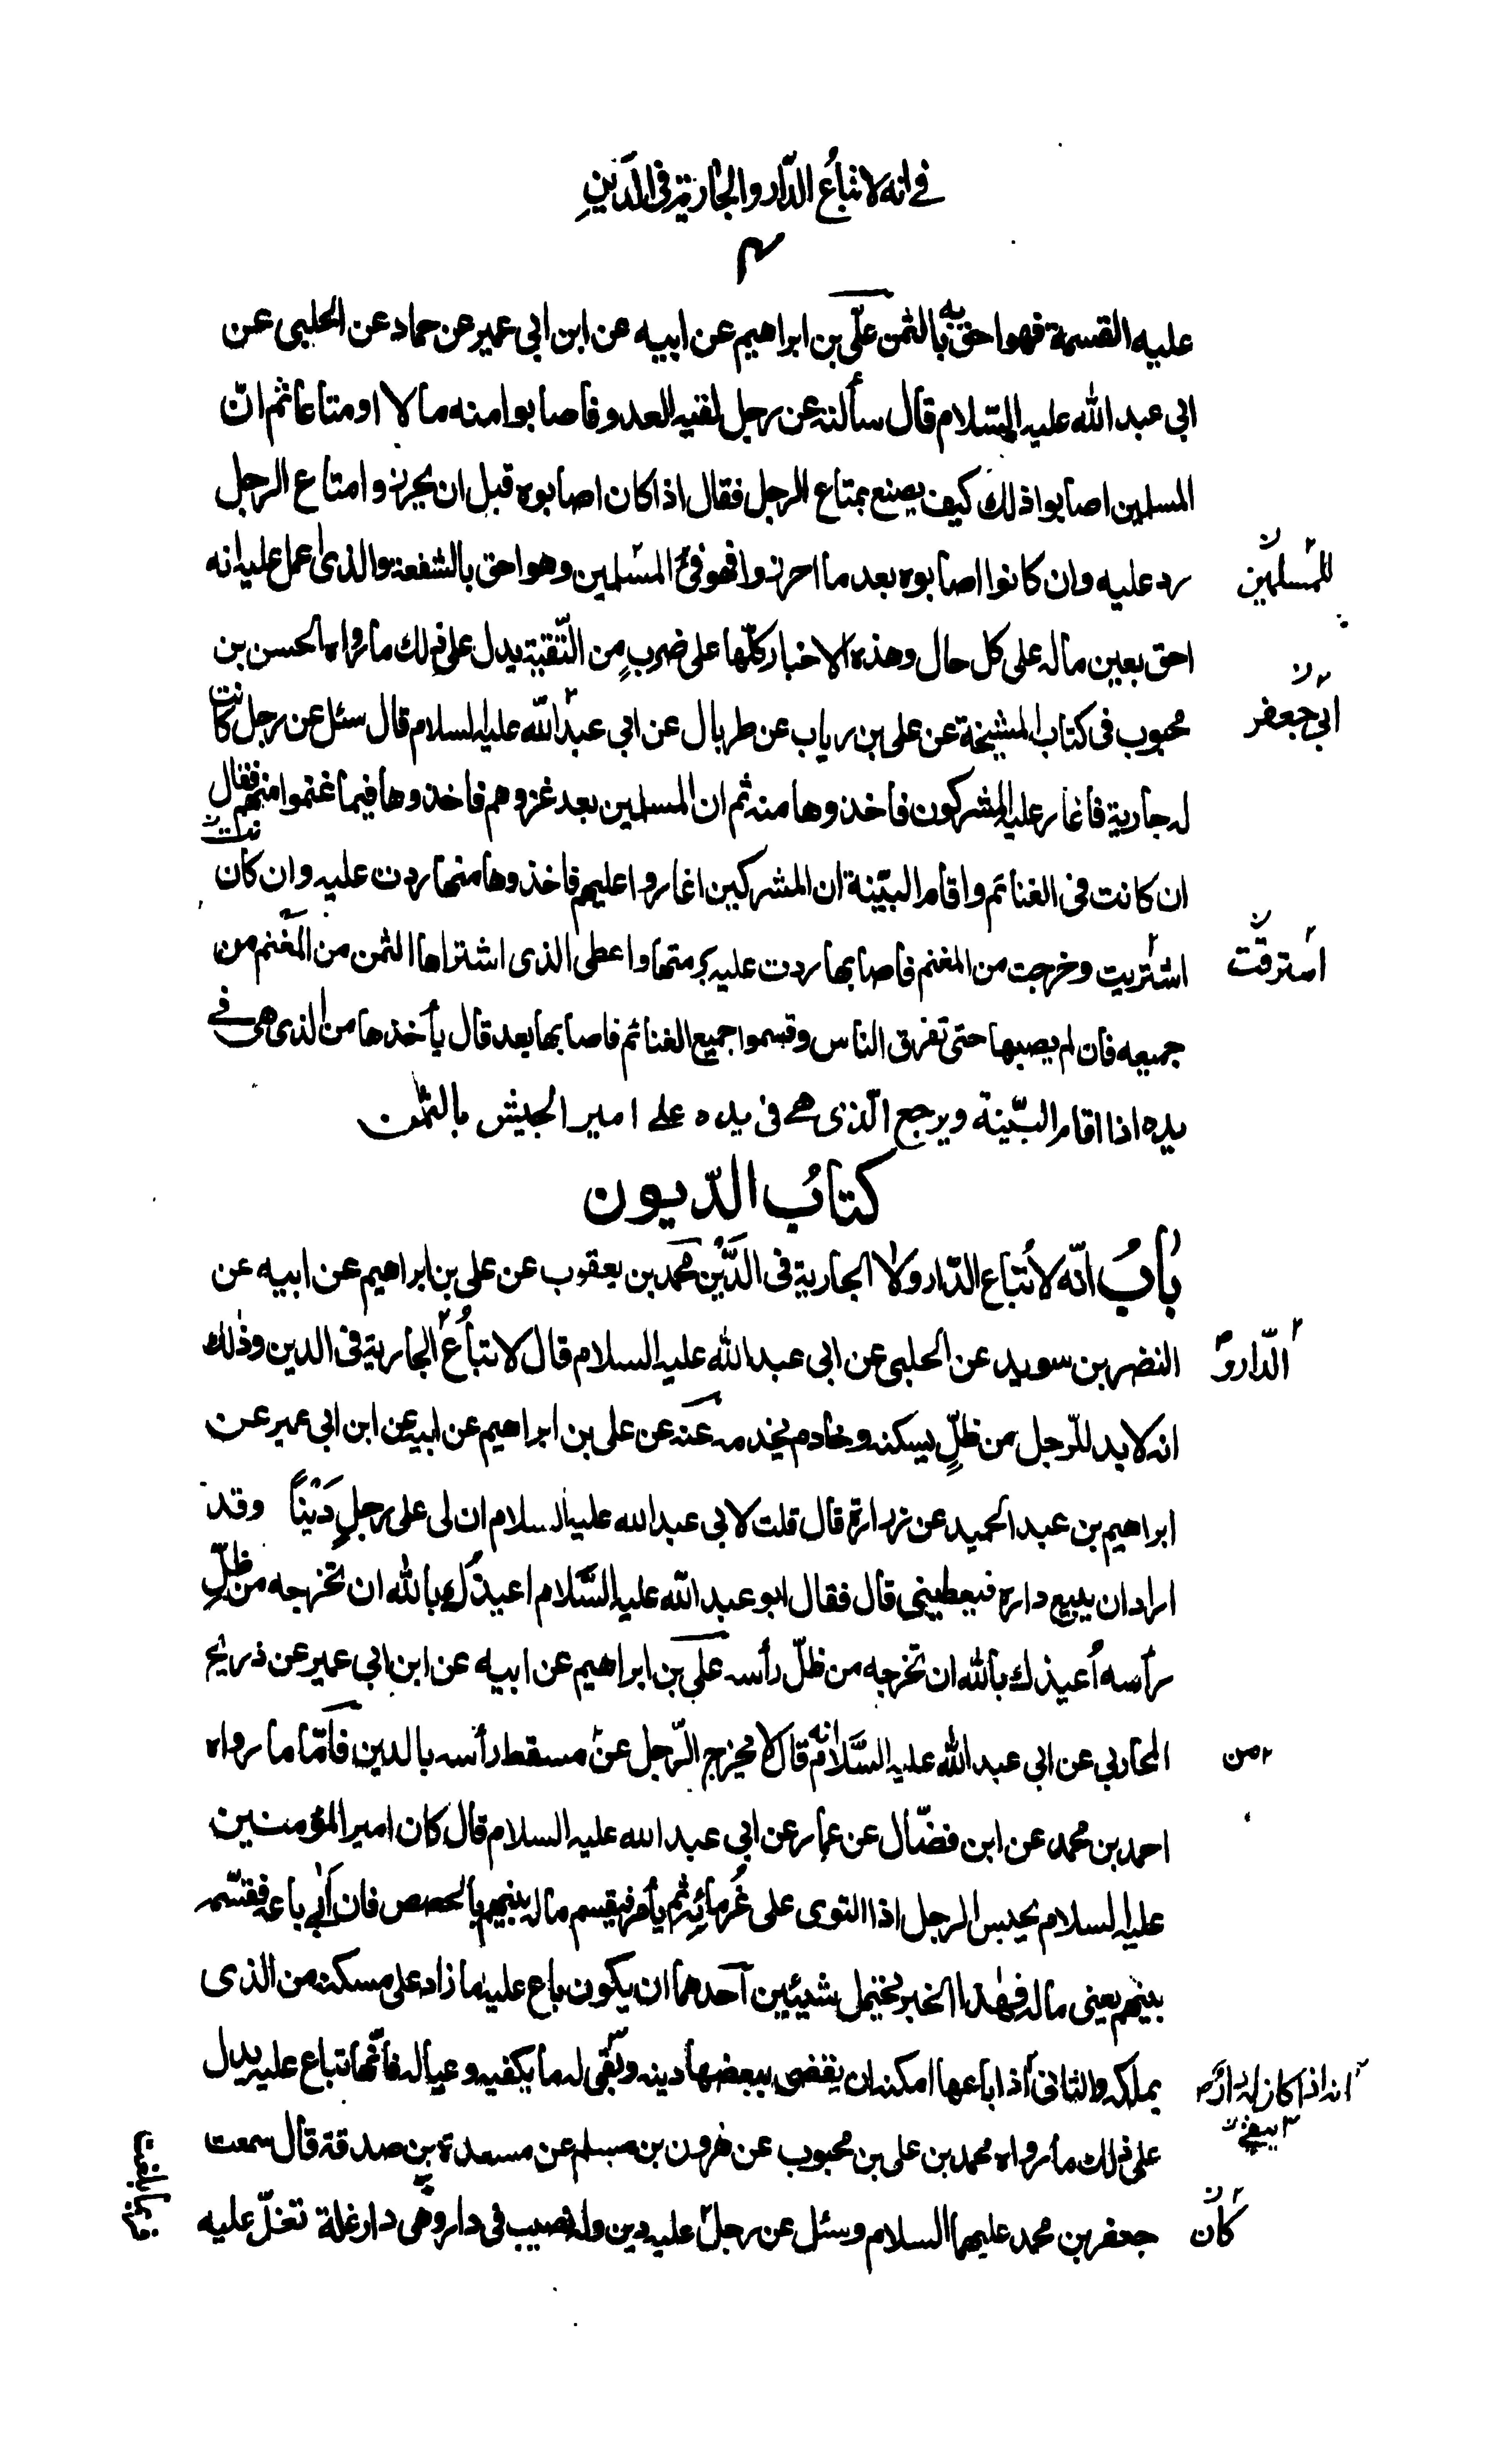 في انه لا تباع الدّار والجارية في الدَين
٣
عليه القسمة فهو احق به بالثمن علّي بن ابراهيم عن ابيه عن ابن ابي عمير عن حماد عن الحلبي عن
ابي عبد الله عليه السلام قال سألته عن رجل لقيه العدو فاصابوا منه مالا او متاعا ثم انّ
المسلمين اصابوا ذلك كيف يصنع بمتاع الرجل فقال اذا كان اصابوه قبل ان يحرزوا متاع الرجل
رد عليه وان كانوا اصابوه بعد ما احرزوا فهو فئ المسلمين وهو احق بالشفعة والذى اعمل عليه انه
للمسلمين
احق بعين ماله على كل حال وهذه الاخبار كلّها على ضربٍ من التّقية يدل على ذلك ما رواه الحسن بن
محبوب فى كتاب المشيخة عن على بن رياب عن طربال عن ابي عبد الله عليه السلام قال سئل عن رجل كانت
ابي جعفر
له جارية فاغار عليه المشركون فاخذوها منه ثم ان المسلمين بعد غزوهم فاخذوها فيما غنموا منهم فقال
ان كانت فى الغنائم واقام البيّنة ان المشركين اغاروا عليهم فاخذوها منه ردت عليه وان كان
اشتريت وخرجت من المغنم فاصابها ردت عليه برمتها واعطى الذى اشتراها الثمن من المغنم من
استرقت
جميعه فان لم يصبها حتى تفرق الناس وقسموا جميع الغنائم فاصابها بعد قال يأخذها من الذى هى في
يده اذا اقام البيّنة ويرجع الّذى هي فى يده على امير الجيش بالثمن
كتابُ الدّيون
بابُ انّه لا تُباع الدّار ولا الجارية فى الدَّيْن محمد بن يعقوب عن على بن ابراهيم عن ابيه عن
النضر بن سويد عن الحلبى عن ابى عبد الله عليه السلام قال لا تباُع الجارية فى الدين وذلك
الدّار و
انه لا بد للرّجل من ظلٍّ يسكنه وخادم يخدمه عنه عن على بن ابراهيم عن ابيه عن ابن ابى عمير عن
ابراهيم بن عبد الحميد عن زرارة قال قلت لابى عبد الله عليه السلام ان لى على رجلٍ دَيْناً وقد
اراد ان يبيع داره فيعطينى قال فقال ابو عبد الله عليه السَّلام اعيذك بالله ان تخرجه من ظلّ
رأسه اُعيذك بالله ان تخرجه من ظلّ رأسه علي بن ابراهيم عن ابيه عن ابن ابي عمير عن ذريح
المحاربي عن ابى عبد الله عليه السَّلام انه قال لا يخرج الرّجل عن مسقط رأسه بالدين فامّا ما رواه
من
احمد بن محمد عن ابن فضّال عن عمار عن ابي عبد الله عليه السلام قال كان امير المؤمنين
عليه السلام يحبس الرجل اذا التوى على غُرمائه ثم يأمر فيقسم ماله بينهم بالحصص فان أبى باعه فقسّمه
بينهم يعنى ماله فهذا الخبر يحتمل شيئين احدهما ان يكون باع عليه ما زاد على مسكنه من الذى
يملكه والثانى اذا باعها امكنه ان يقضى ببعضها دينه ويبقى له ما يكفيه وعياله فانّها تباع عليه يدل
انه اذا كان له دار
على ذلك ما رواه محمد بن على بن محبوب عن هرون بن مسلم عن مسعدة بن صدقة قال سمعت
جعفر بن محمد عليهما السلام وسئل عن رجل عليه دين وله نصيب فى دار وهى دار غلة تغلّ عليه
كان
فربما بلغت